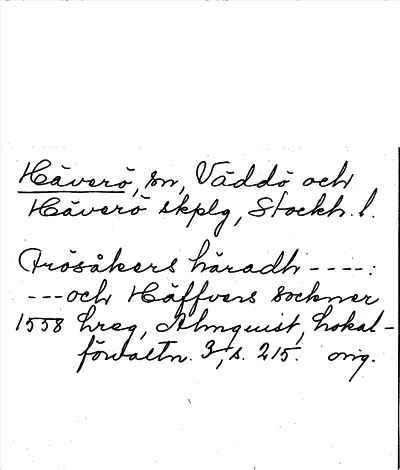 Häverö, sn, Väddö och
Häverö skplg, Stockh. l.
Frösåkers häradh ----:
--- och Häffvers sockner
1558 hreg, Almquist, Lokal-
förvaltn. 3, s. 215. orig.